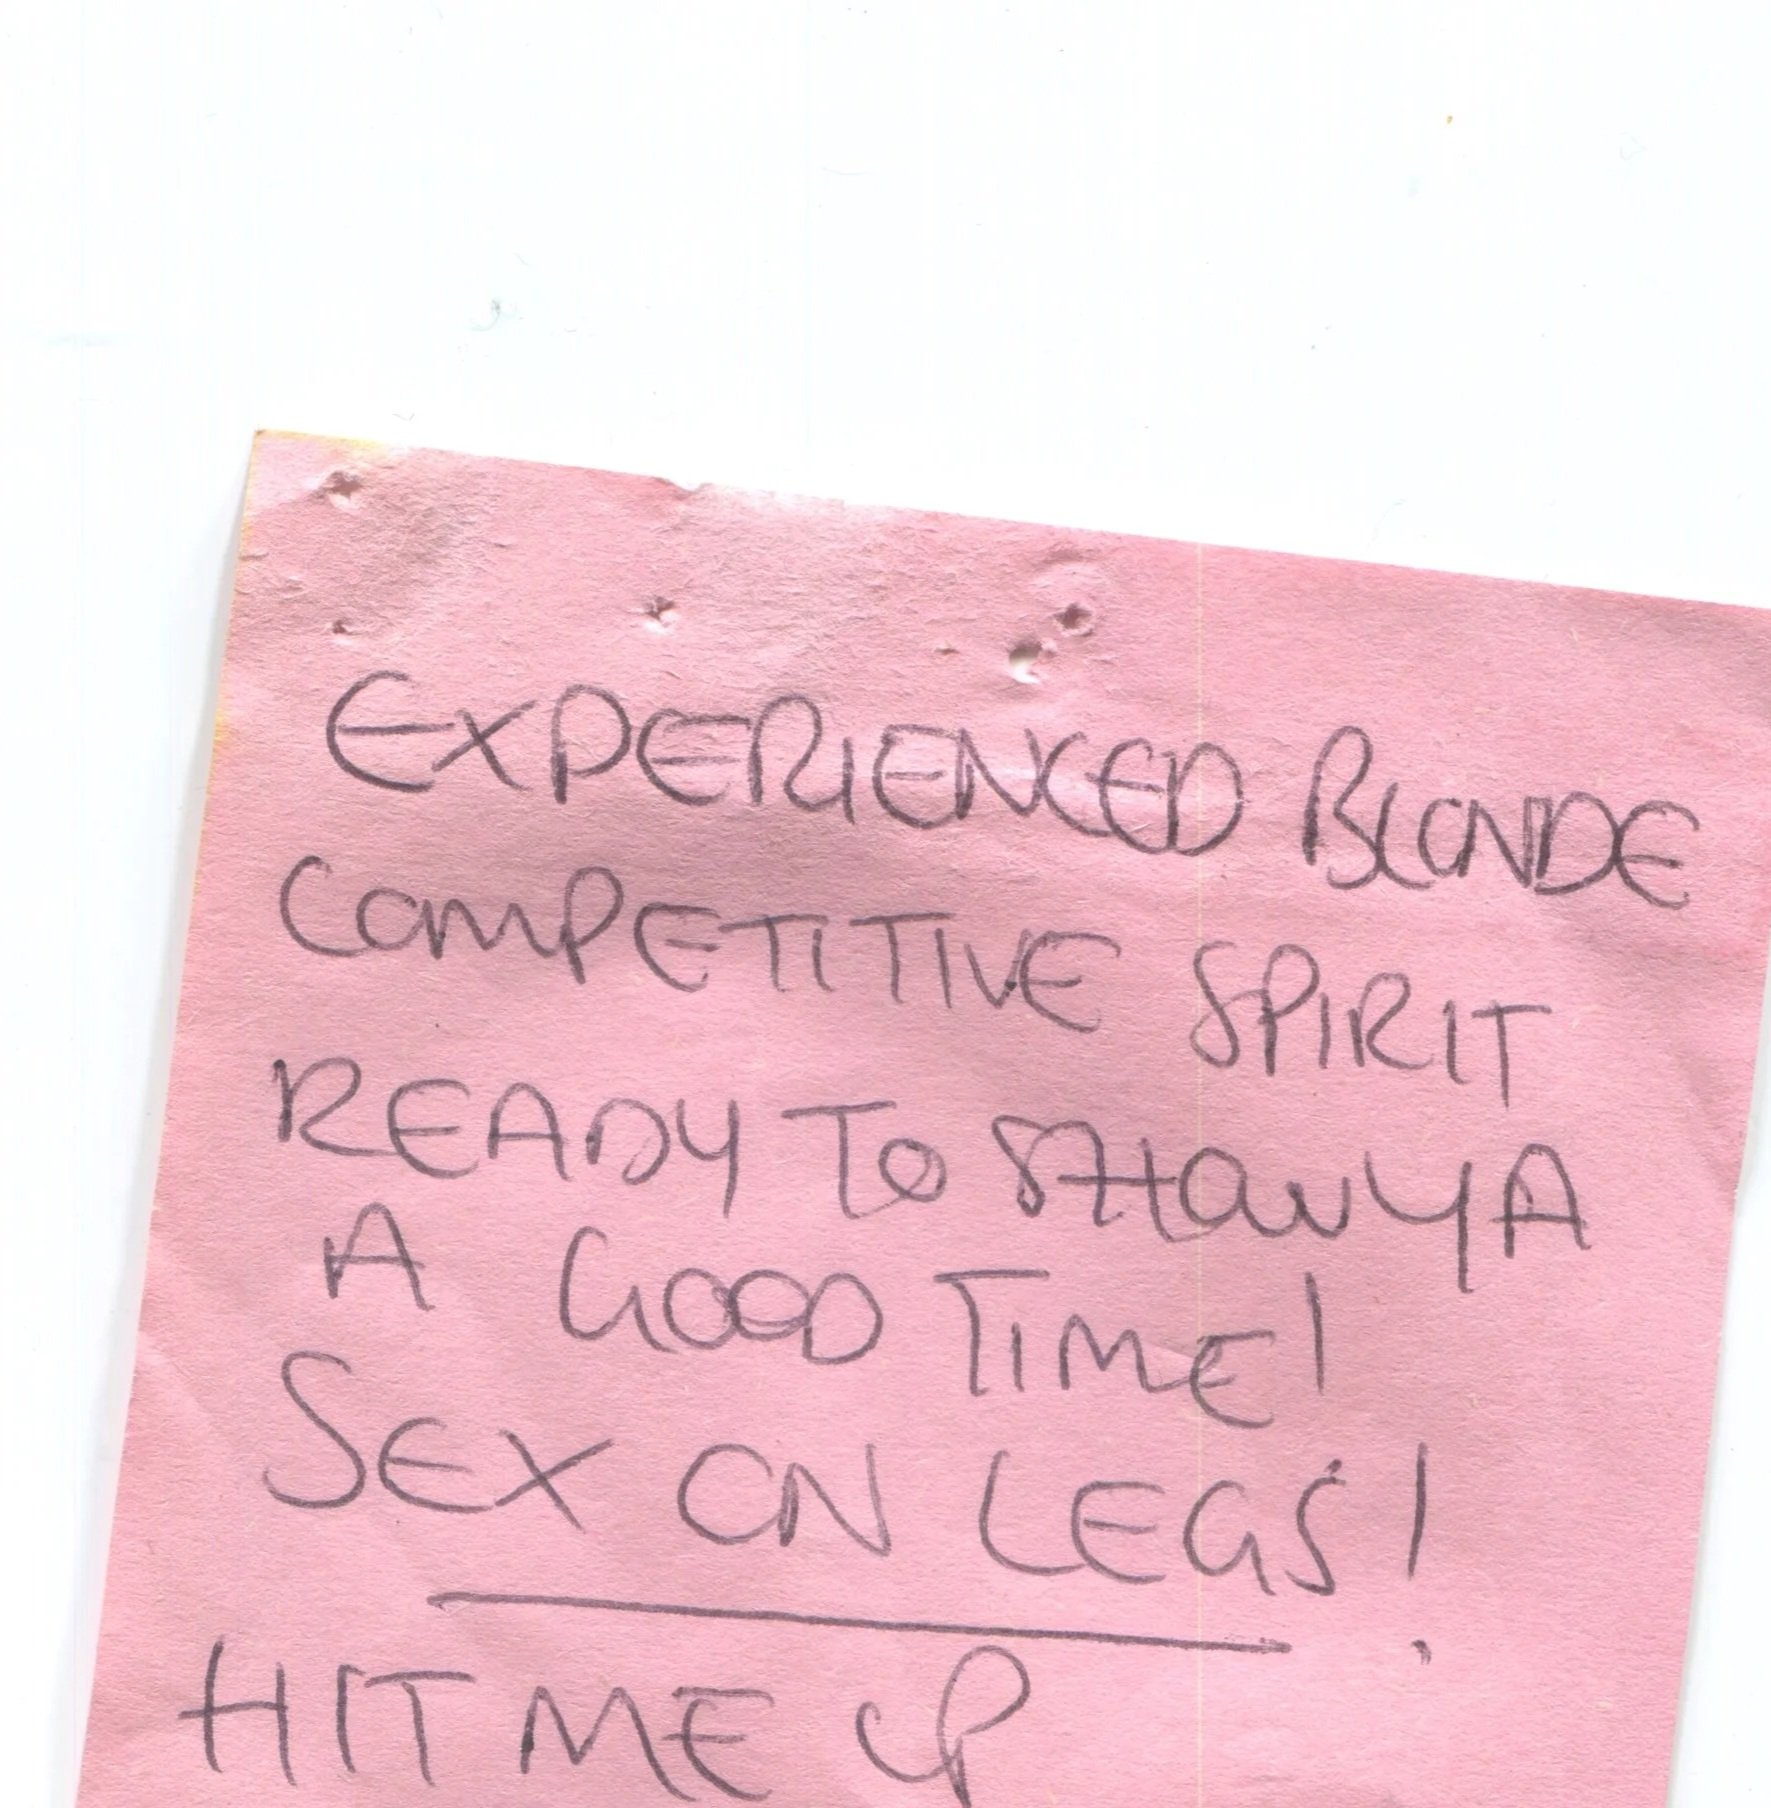 EXPERIENCED BLONDE
COMPETITIVE SPIRIT
READY TO SHOW YA
A GOOD TIME!
SEX ON LEGS!
HIT ME UP